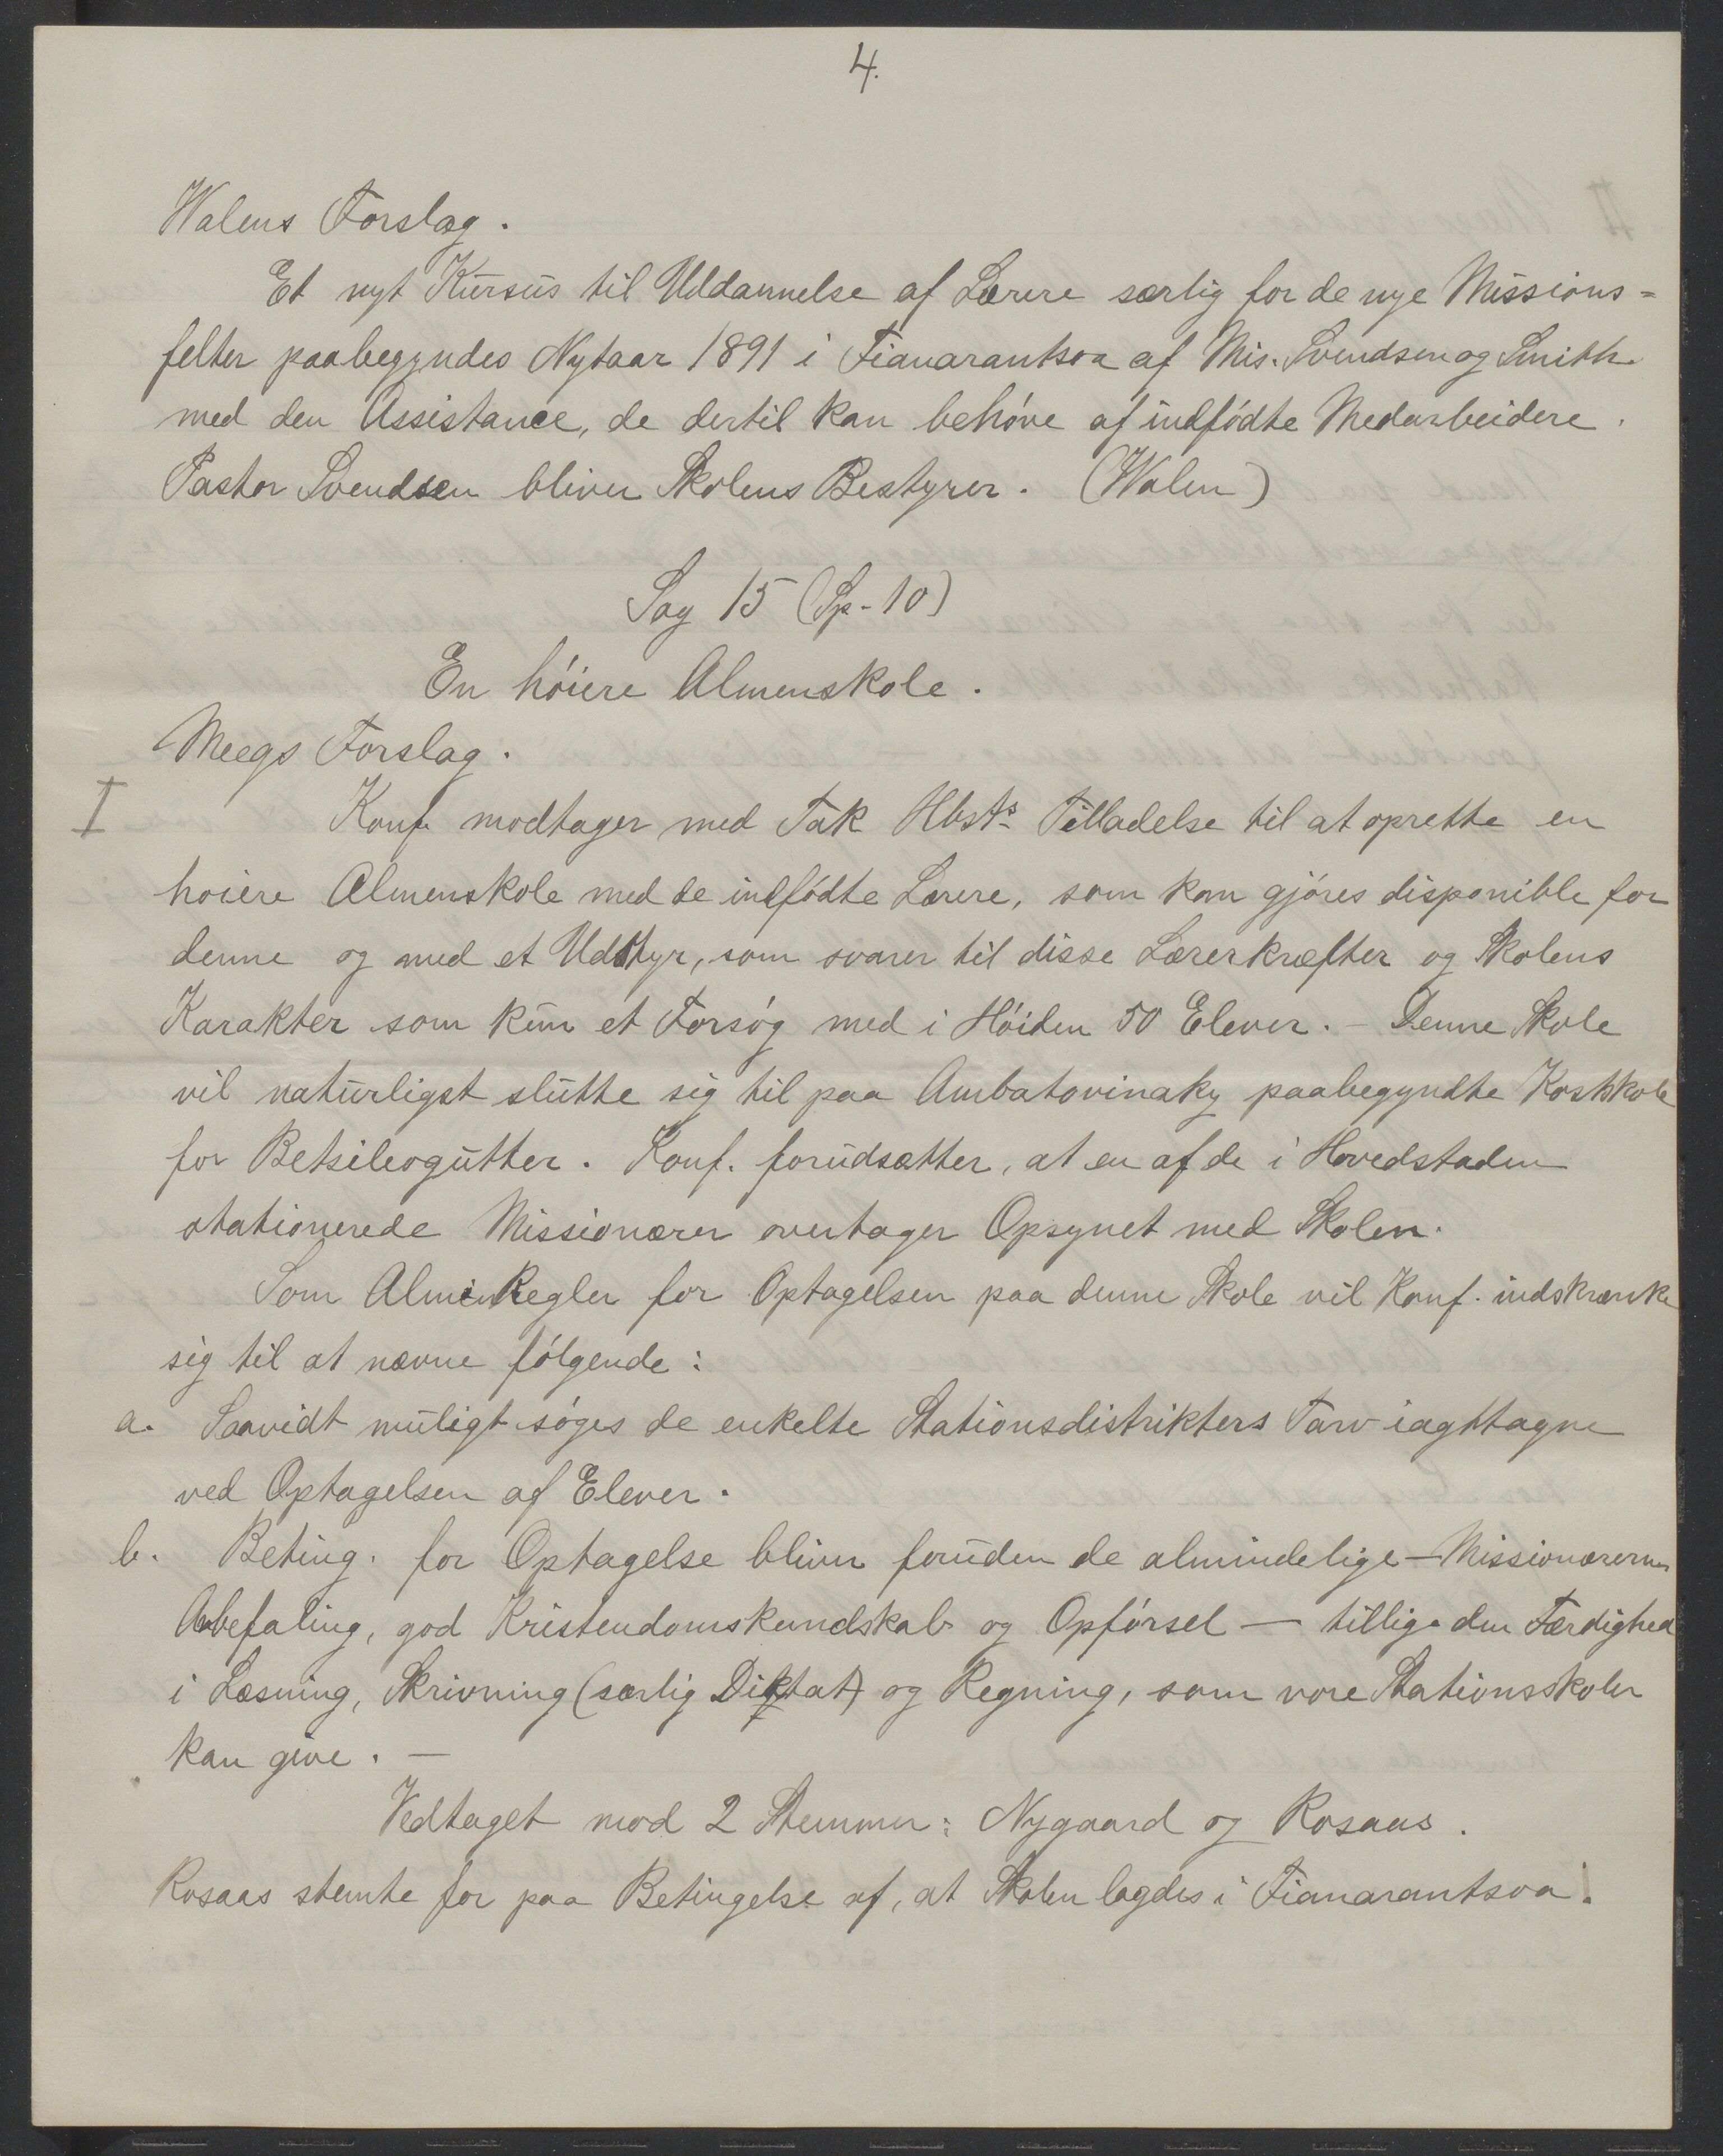 4.
Walens Forslag.
Et nyt Kursus til Uddannelse af Lærere særlig for de nye Missions=
felter paabegyndes Nytaar 1891 i Fianarantsoa af Mis. Svendsen og Smith
med den Assistance, de dertil kan behöve af indfödte Medarbeidere.
Pastor Svendsen bliver Skolens Bestyrer. (Walen)
Sag 15 (Sp-10)
En höiere Almenskole.
Meegs Forslag.
I
Konf. modtager med Tak Hbsts Tilladelse til at oprette en
hoiere Almenskole med de indfödte Lærere, som kan gjöres disponible for
denne og med et Udstyr, som svarer til disse Lærerkræfter og Skolens
Karakter som kun et Forsög med i Höiden 50 Elever. - Denne Skole
vil naturligst slutte sig til paa Ambatovinaky paabegyndte Kostskole
for Betsileogutter. Konf. forudsætter, at en af de i Hovedstaden
stationerede Missionærer overtager Opsynet med Skolen.
Som AlmenRegler for Optagelsen paa denne Skole vil Konf. indskrænke
sig til at nævne fölgende:
a. Saavidt muligt söges de enkelte Stationsdistrikters Tarv iagttagne
ved Optagelsen af Elever.
b. Beting. for Optagelse bliver foruden de almindelige - Missionærernes
Anbefaling, god Kristendomskundskab og Opförsel - tillige den Færdighed
i Læsning, Skrivning (særlig Diktat) og Regning, som vore Stationsskoler
kan give. -
Vedtaget mod 2 Stemmer: Nygaard og Rosaas.
Rosaas stemte for paa Betingelse af, at Skolen lagdes i Fianarantsoa.